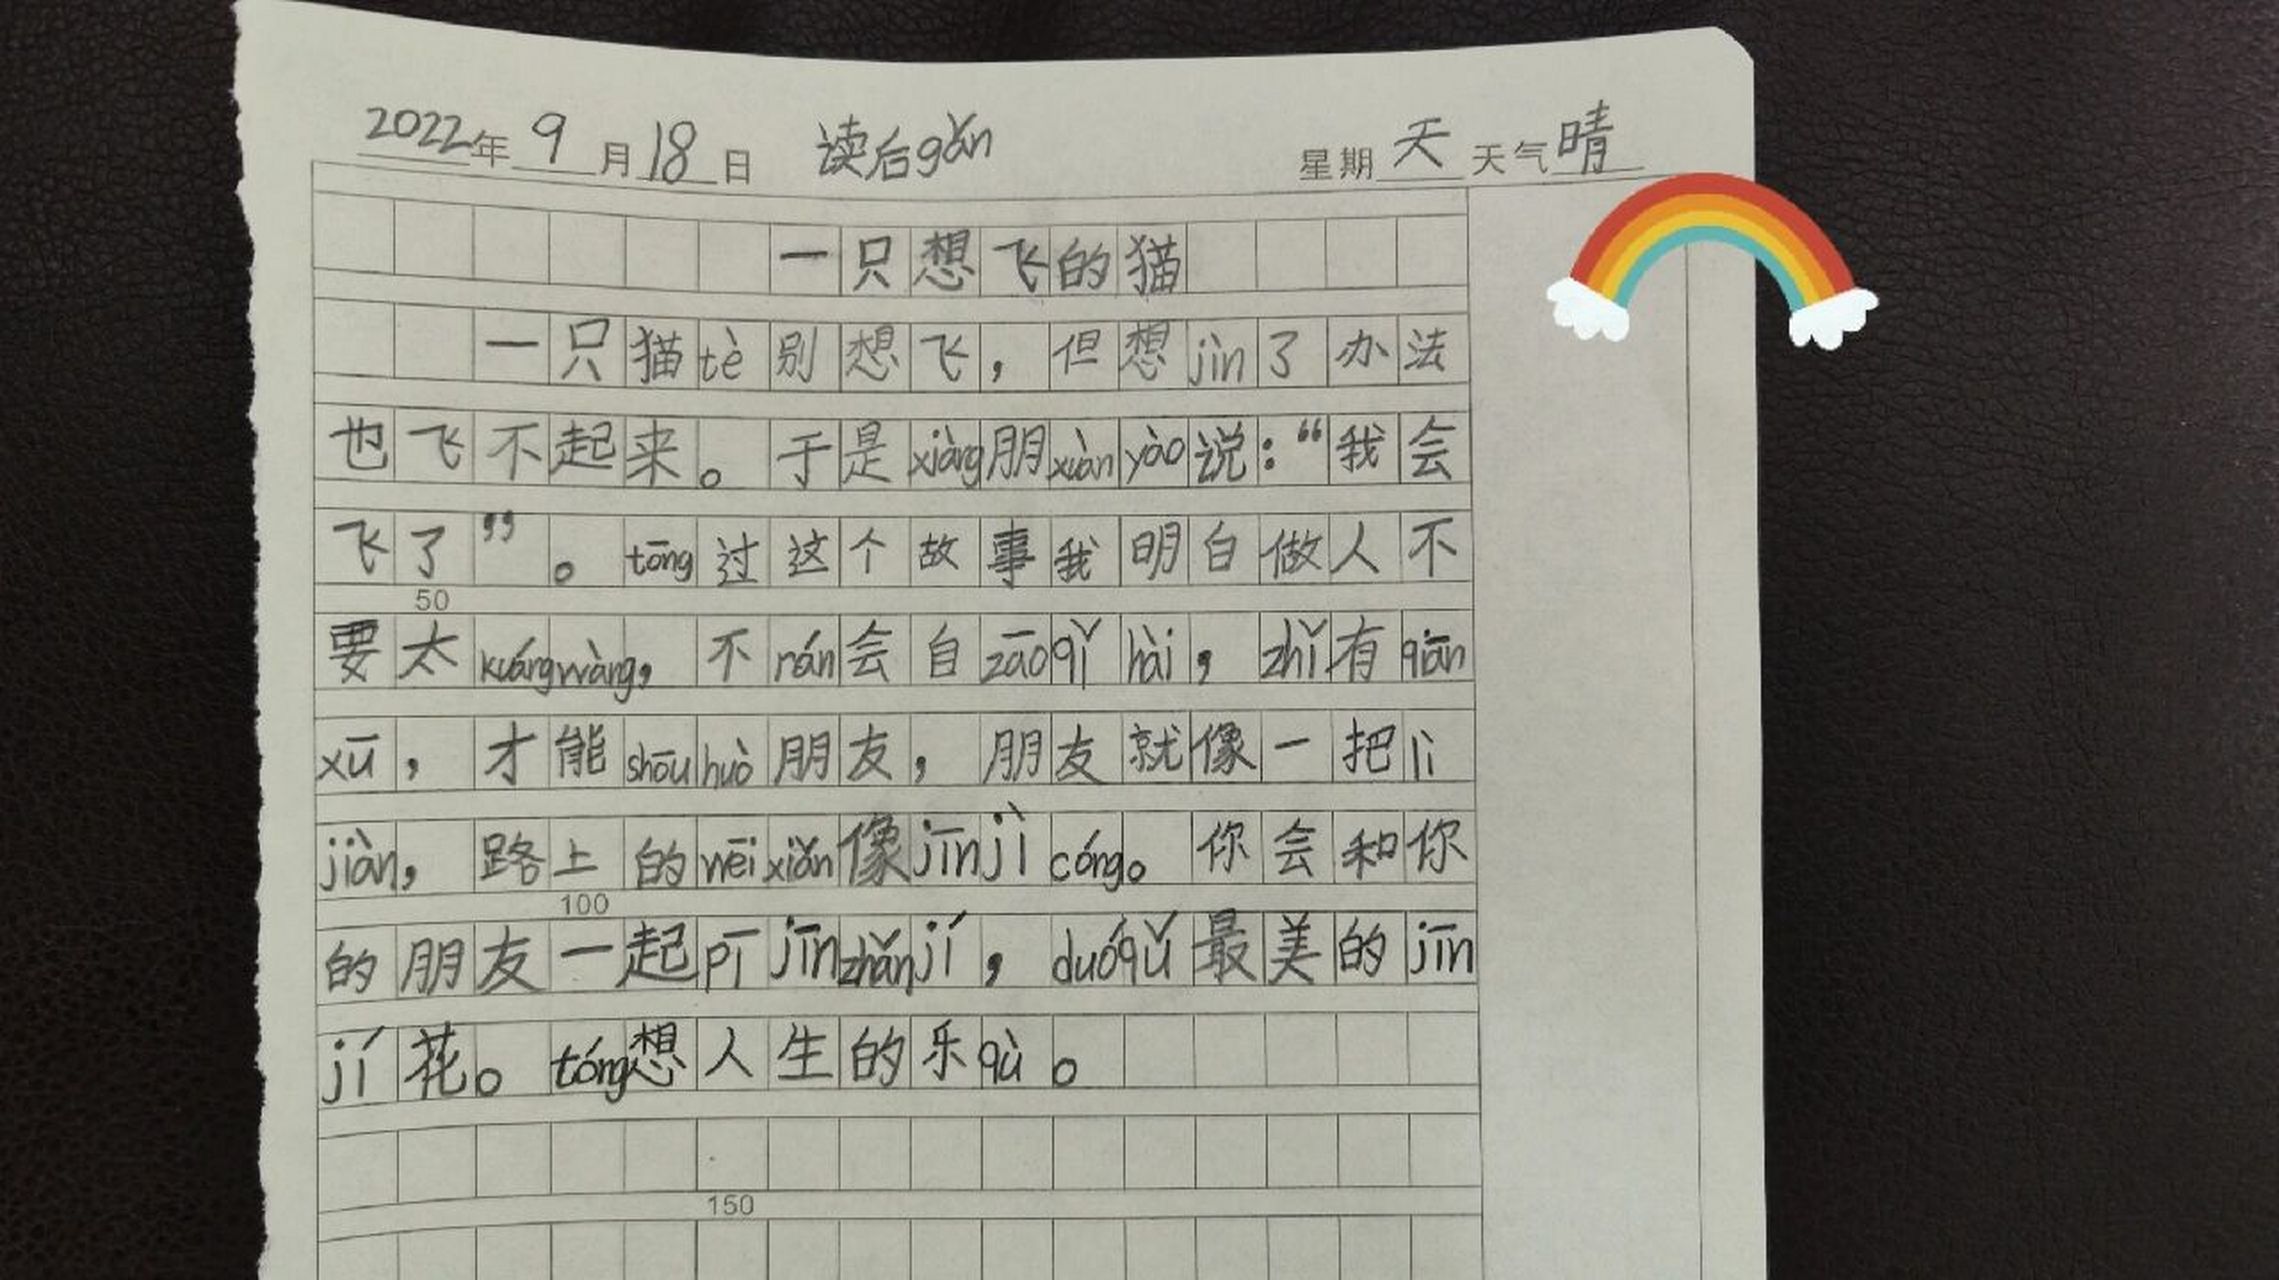 2022年9月18日 读后gǎn 星期天 天气晴
一只想飞的猫
一只猫tè别想飞，但想jìn了办法
也飞不起来。于是xiàng朋xuàn yào说：“我会
飞了”。tōng过这个故事我明白做人不
50
要太kuángwàng，不rán会自zāoqǐ hài，zhǐ有qiān
xū，才能shōuhuò朋友，朋友就像一把lì
jiàn，路上的wēixiǎn像jīnjì cóng。你会和你
100
的朋友一起pī jīnzhǎnjí，duóqǔ最美的jīn
jí花。tóng想人生的乐qù。
150